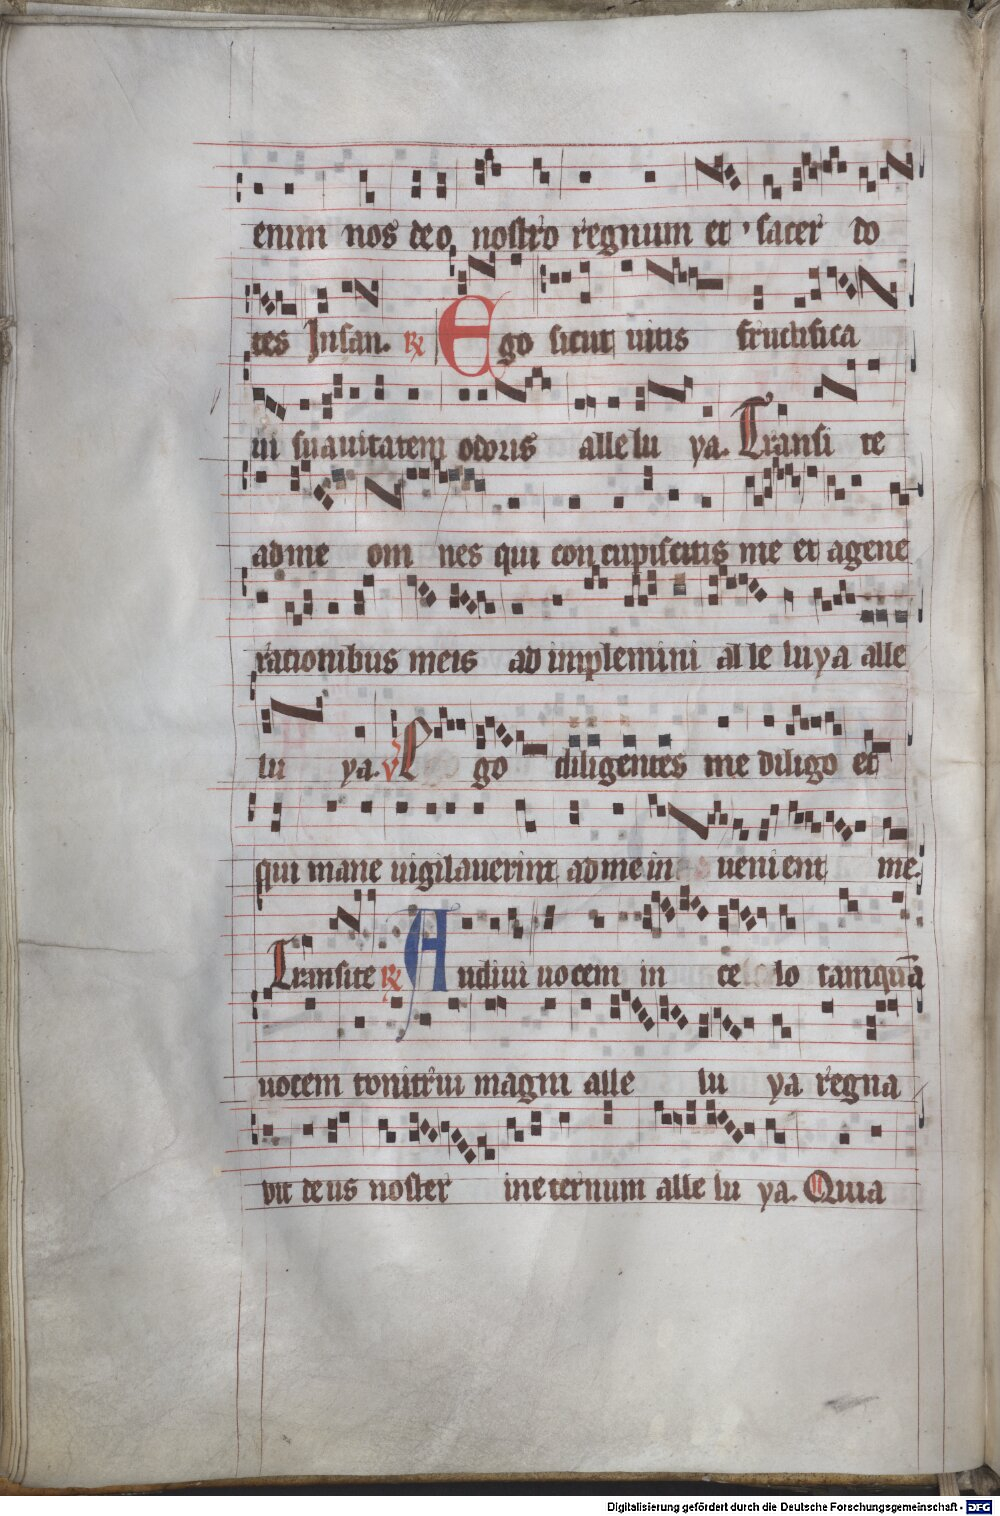 enim nos deo nostro regnum et sacer do
tes In san. ℞ Ego sicut uitis fructifica
ui suauitatem odoris alle lu ya. Transi te
ad me om nes qui con cupiscitis me et a gene
rationibus meis ad implemini al le luya alle
lu ya. V Ego diligentes me diligo et
qui mane uigilauerint ad me in uenient me.
Transite ℞ Audiui uocem in ce lo tamquā
uocem tonitrui magni alle lu ya regna
uit deus noster in eternum alle lu ya. Quia
Digitalisierung gefördert durch die Deutsche Forschungsgemeinschaft - DFG